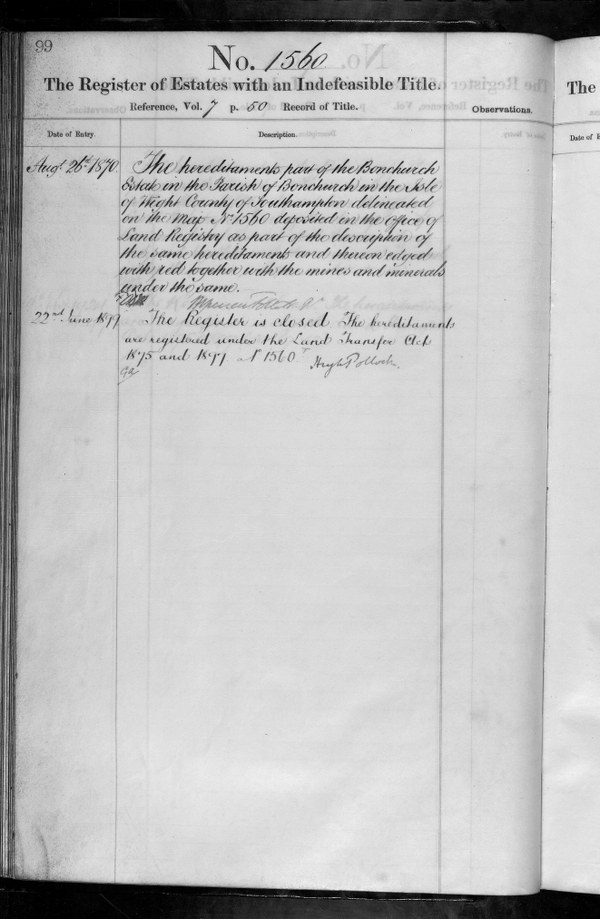 99
No. 1560
The Register of Estates with an Indefeasible Title.
Reference, Vol. 7 p. 50 Record of Title.
Observations.
Date of Entry
Description.
Augt 26th 1870
The hereditaments part of the Bonchurch
Estate in the Parish of Bonchurch in the Isle
of Wight County of Southampton delineated
on the Map No 1560 deposited in the office of
Land Registry as part of the description of
the same hereditaments and thereon edged
with red together with the mines and minerals
under the same.
22nd June 1899
The Register is closed The hereditaments
are registered under the Land Transfer Acts
1875 and 1897 No 1560
Hugh Pollock.
The
Date of E